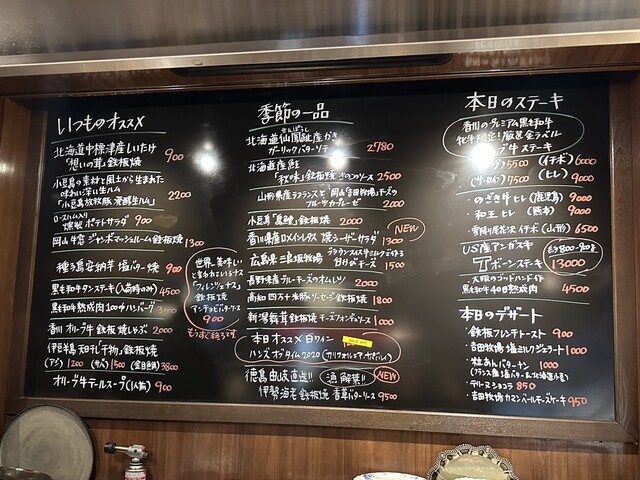 いつものオススメ
北海道中標津産しいたけ
「想いの茸」鉄板焼 900
小豆島の素材と風土から生まれた
味わい深い生ハム
「小豆島放牧豚 発酵生ハム」 2200
ロースハム入り
燻製ポテトサラダ 900
岡山 牛窓 ジャンボマッシュルーム鉄板焼 1300
種子島安納芋 塩バター焼 900
黒毛和牛タンステーキ(入荷時のみ) 4500
黒毛和牛熟成肉100%ハンバーグ
香川 オリーブ牛 鉄板焼しゃぶ 2000
伊豆半島 天日干し「干物」鉄板焼
(アジ)1200 (サバ)1500 (金目鯛)3800
オリーブ牛テールスープ(1人前) 900
世界一美味しい
と言われているナス
「フィレンツェナス」
鉄板焼
アンチョビバターソース
900
もうすぐ終わりです
季節の一品
せんぽうし
北海道仙鳳趾産かき
ガーリックバターソテー 2780
北海道産鮭
「秋味」鉄板焼 きのこソース 2500
山形県産ラフランスと岡山「吉田牧場」チーズの
フルーツカプレーゼ 2000
小豆島「真鯛」鉄板焼 2000
NEW
香川県産ロメインレタス 焼シーザーサラダ 1300
フランスパンスイギュウミルクフェイトう
広島県 三良坂牧場 日けのチーズ 1500
長野県産ブルーチーズのオムレツ 2000
高知 四万十 朱豚ソーセージ鉄板焼 1800
新潟舞茸 鉄板焼 チーズフォンデュソース 1000
本日オススメ白ワイン
ハンズ オブ タイム2020
徳島 由岐直送!! 漁解禁!! NEW
伊勢海老 鉄板焼 香草バターソース 9500
本日のステーキ
香川のプレミアム黒毛和牛
牝牛限定!厳選金ラベル
ブ牛 ステーキ
5500 (イチボ) 6000
(サーロイン) 7500 (ヒレ) 9000
・のざき牛ヒレ (鹿児島) 9000
・和王ヒレ (熊本) 9000
・雪降り尾花沢 イチボ (山形) 6500
US産アンガス牛
Tボーンステーキ
700〜800g
13000
大阪のゴッドハンド作
黒毛和牛40日熟成肉 4500
本日のデザート
・鉄板フレンチトースト 900
・吉田牧場 塩ミルクジェラート 1000
・粒あんバターナン 1000
(フランス産塩バター&北海道小豆)
・テリーヌショコラ 850
・吉田牧場カマンベールチーズケーキ 950